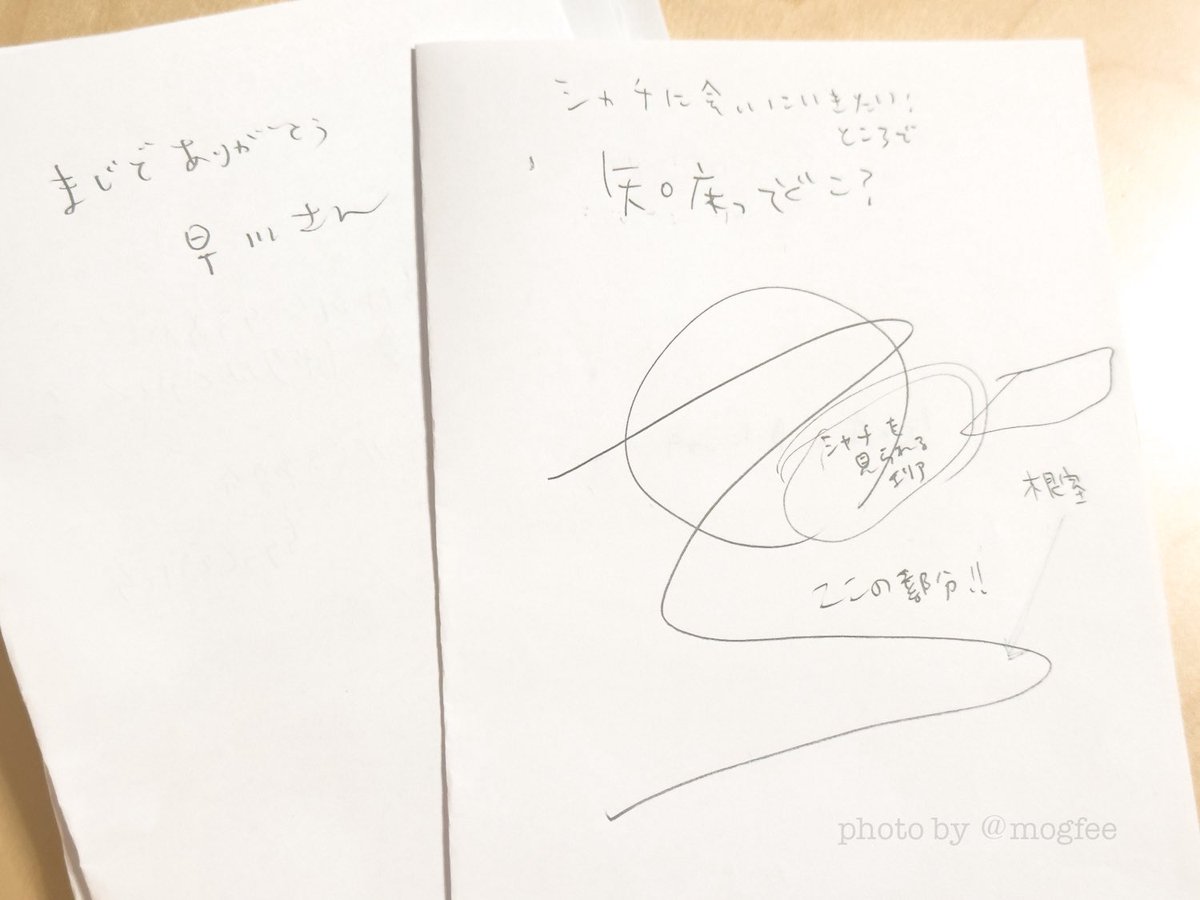 まじでありがとう
早川さん
シャチに会いにいきたい!
ところで
知床ってどこ?
シャチを
見られる
エリア
根室
ここの部分!!
photo by @mogfee